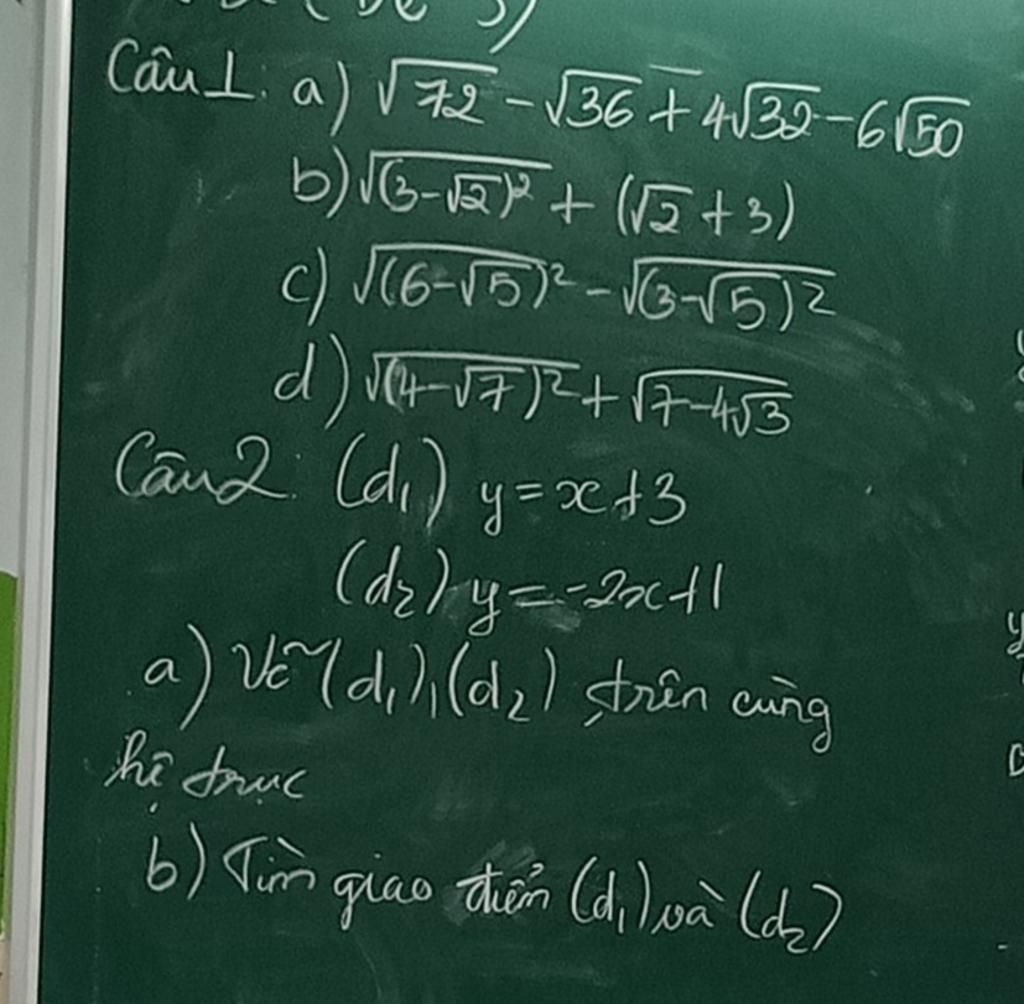 Câu 1: a) √72 - √36 + 4√32 - 6√50
b) √(3-√2)² + (√2 + 3)
c) √(6-√5)² - √(3-√5)²
d) √(4-√7)² + √7-4√3
Câu 2: (d₁) y = x + 3
(d₂) y = -2x + 1
a) Vẽ (d₁), (d₂) trên cùng
hệ trục
b) Tìm giao điểm (d₁) và (d₂)